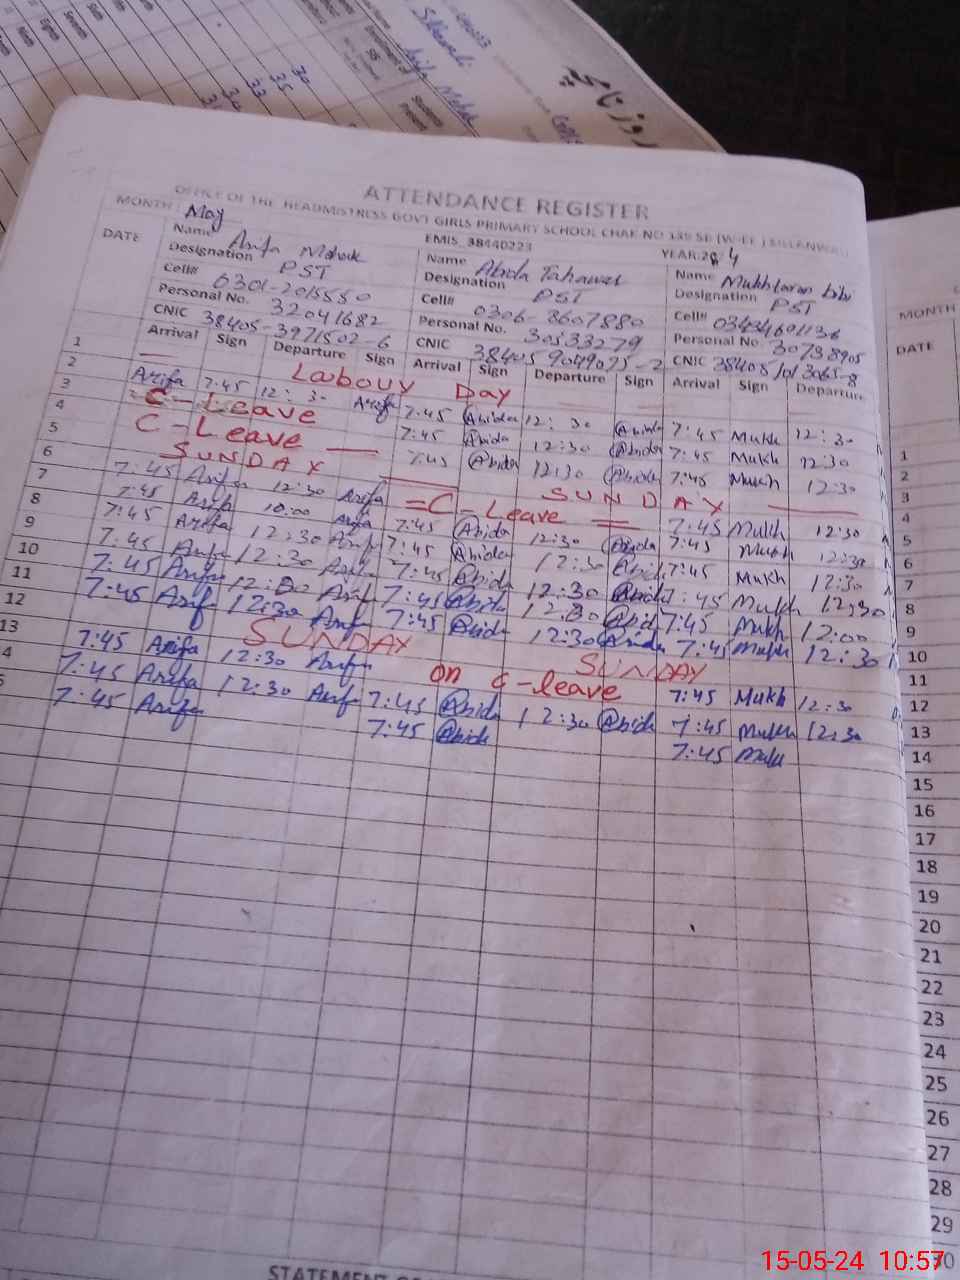 روزنامچہ
ATTENDANCE REGISTER
OFFICE OF THE HEADMISTRESS GOVT GIRLS PRIMARY SCHOOL CHAK NO
MONTH May EMIS_38440223 YEAR:20 4
DATE Name Arifa Mehak Name Abida Tahawar Name Mukhtaran bibi
Designation PST Designation PST Designation PST
Cell# 0301-2015550 Cell# 0306-8607880 Cell# 03434691136
Personal No. 32041682 Personal No. 30533279 Personal No 30738905
CNIC 38405-3971502-6 CNIC 38405 9049075-2 CNIC
Arrival Sign Departure Sign Arrival Sign Departure Sign Arrival Sign Departure
1 Labour Day
2 Arifa 7:45 12:30 Arifa 7:45 Abida 12:30 Abida 7:45 Mukh 12:30
3 C-Leave 7:45 Abida 12:30 Abida 7:45 Mukh 12:30
4 C-Leave 7:45 Abida 12:30 Abida 7:45 Mukh 12:30
5 SUNDAY SUNDAY
6 7:45 Arifa 12:30 Arifa =C-Leave= 7:45 Mukh 12:30
7 7:45 Arifa 10:00 Arifa 7:45 Abida 12:30 Abida 7:45 Mukh 12:30
8 7:45 Arifa 12:30 Arifa 7:45 Abida 12:30 Abida 7:45 Mukh 12:30
9 7:45 Arifa 12:30 Arifa 7:45 Abida 12:30 Abida 7:45 Mukh 12:30
10 7:45 Arifa 12:00 Arifa 7:45 Abida 12:00 Abida 7:45 Mukh 12:00
11 7:45 Arifa 12:30 Arifa 7:45 Abida 12:30 Abida 7:45 Mukh 12:30
12 SUNDAY SUNDAY
13 7:45 Arifa 12:30 Arifa on c-leave 7:45 Mukh 12:30
4 7:45 Arifa 12:30 Arifa 7:45 Abida 12:30 Abida 7:45 Mukh 12:30
5 7:45 Arifa 7:45 Abida 7:45 Mukh
MONTH
DATE
1
2
3
4
5
6
7
8
9
10
11
12
13
14
15
16
17
18
19
20
21
22
23
24
25
26
27
28
29
30
STATEMENT
15-05-24 10:57